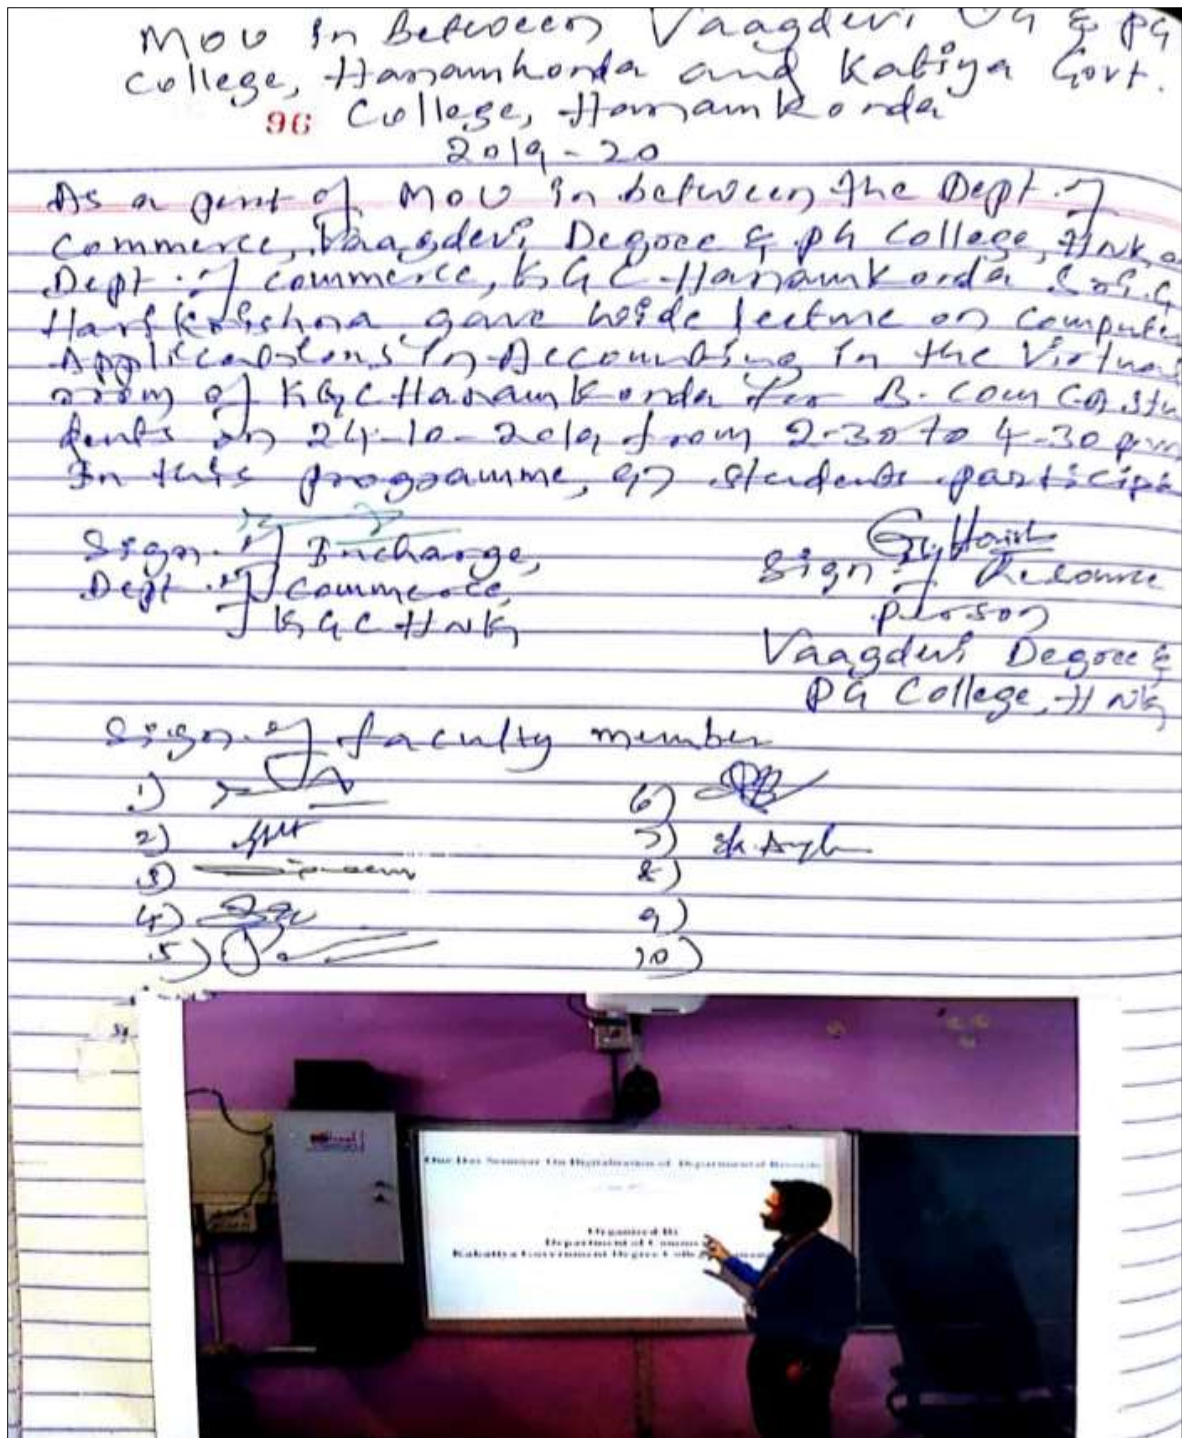 MOU in Between Vaagdevi UG & PG
College, Hanamkonda and Kakiya Govt.
96 College, Hanamkonda
2019-20
As a part of MOU in between the Dept. of
Commerce, Vaagdevi Degree & PG College, HNK,
Dept. of Commerce, KGC Hanamkonda Sri. G
Harikrishna gave wide lecture on Computer
Applications in Accounting in the Virtual
room of KGC Hanamkonda for B.Com CA Stu
dents on 24-10-2019 from 2-30 to 4-30 pm
In this programme, 97 students particip
Sign. of Incharge,
Dept. of Commerce,
KGC HNK
G. Harish
Sign. of Resource
person
Vaagdevi Degree &
PG College, HNK
Sign. of faculty member
1)
2)
3)
4)
5)
6)
7)
8)
9)
10)
One Day Seminar On Digitalization of Departmental Records
Organized By
Department of
Kakatiya Government Degree